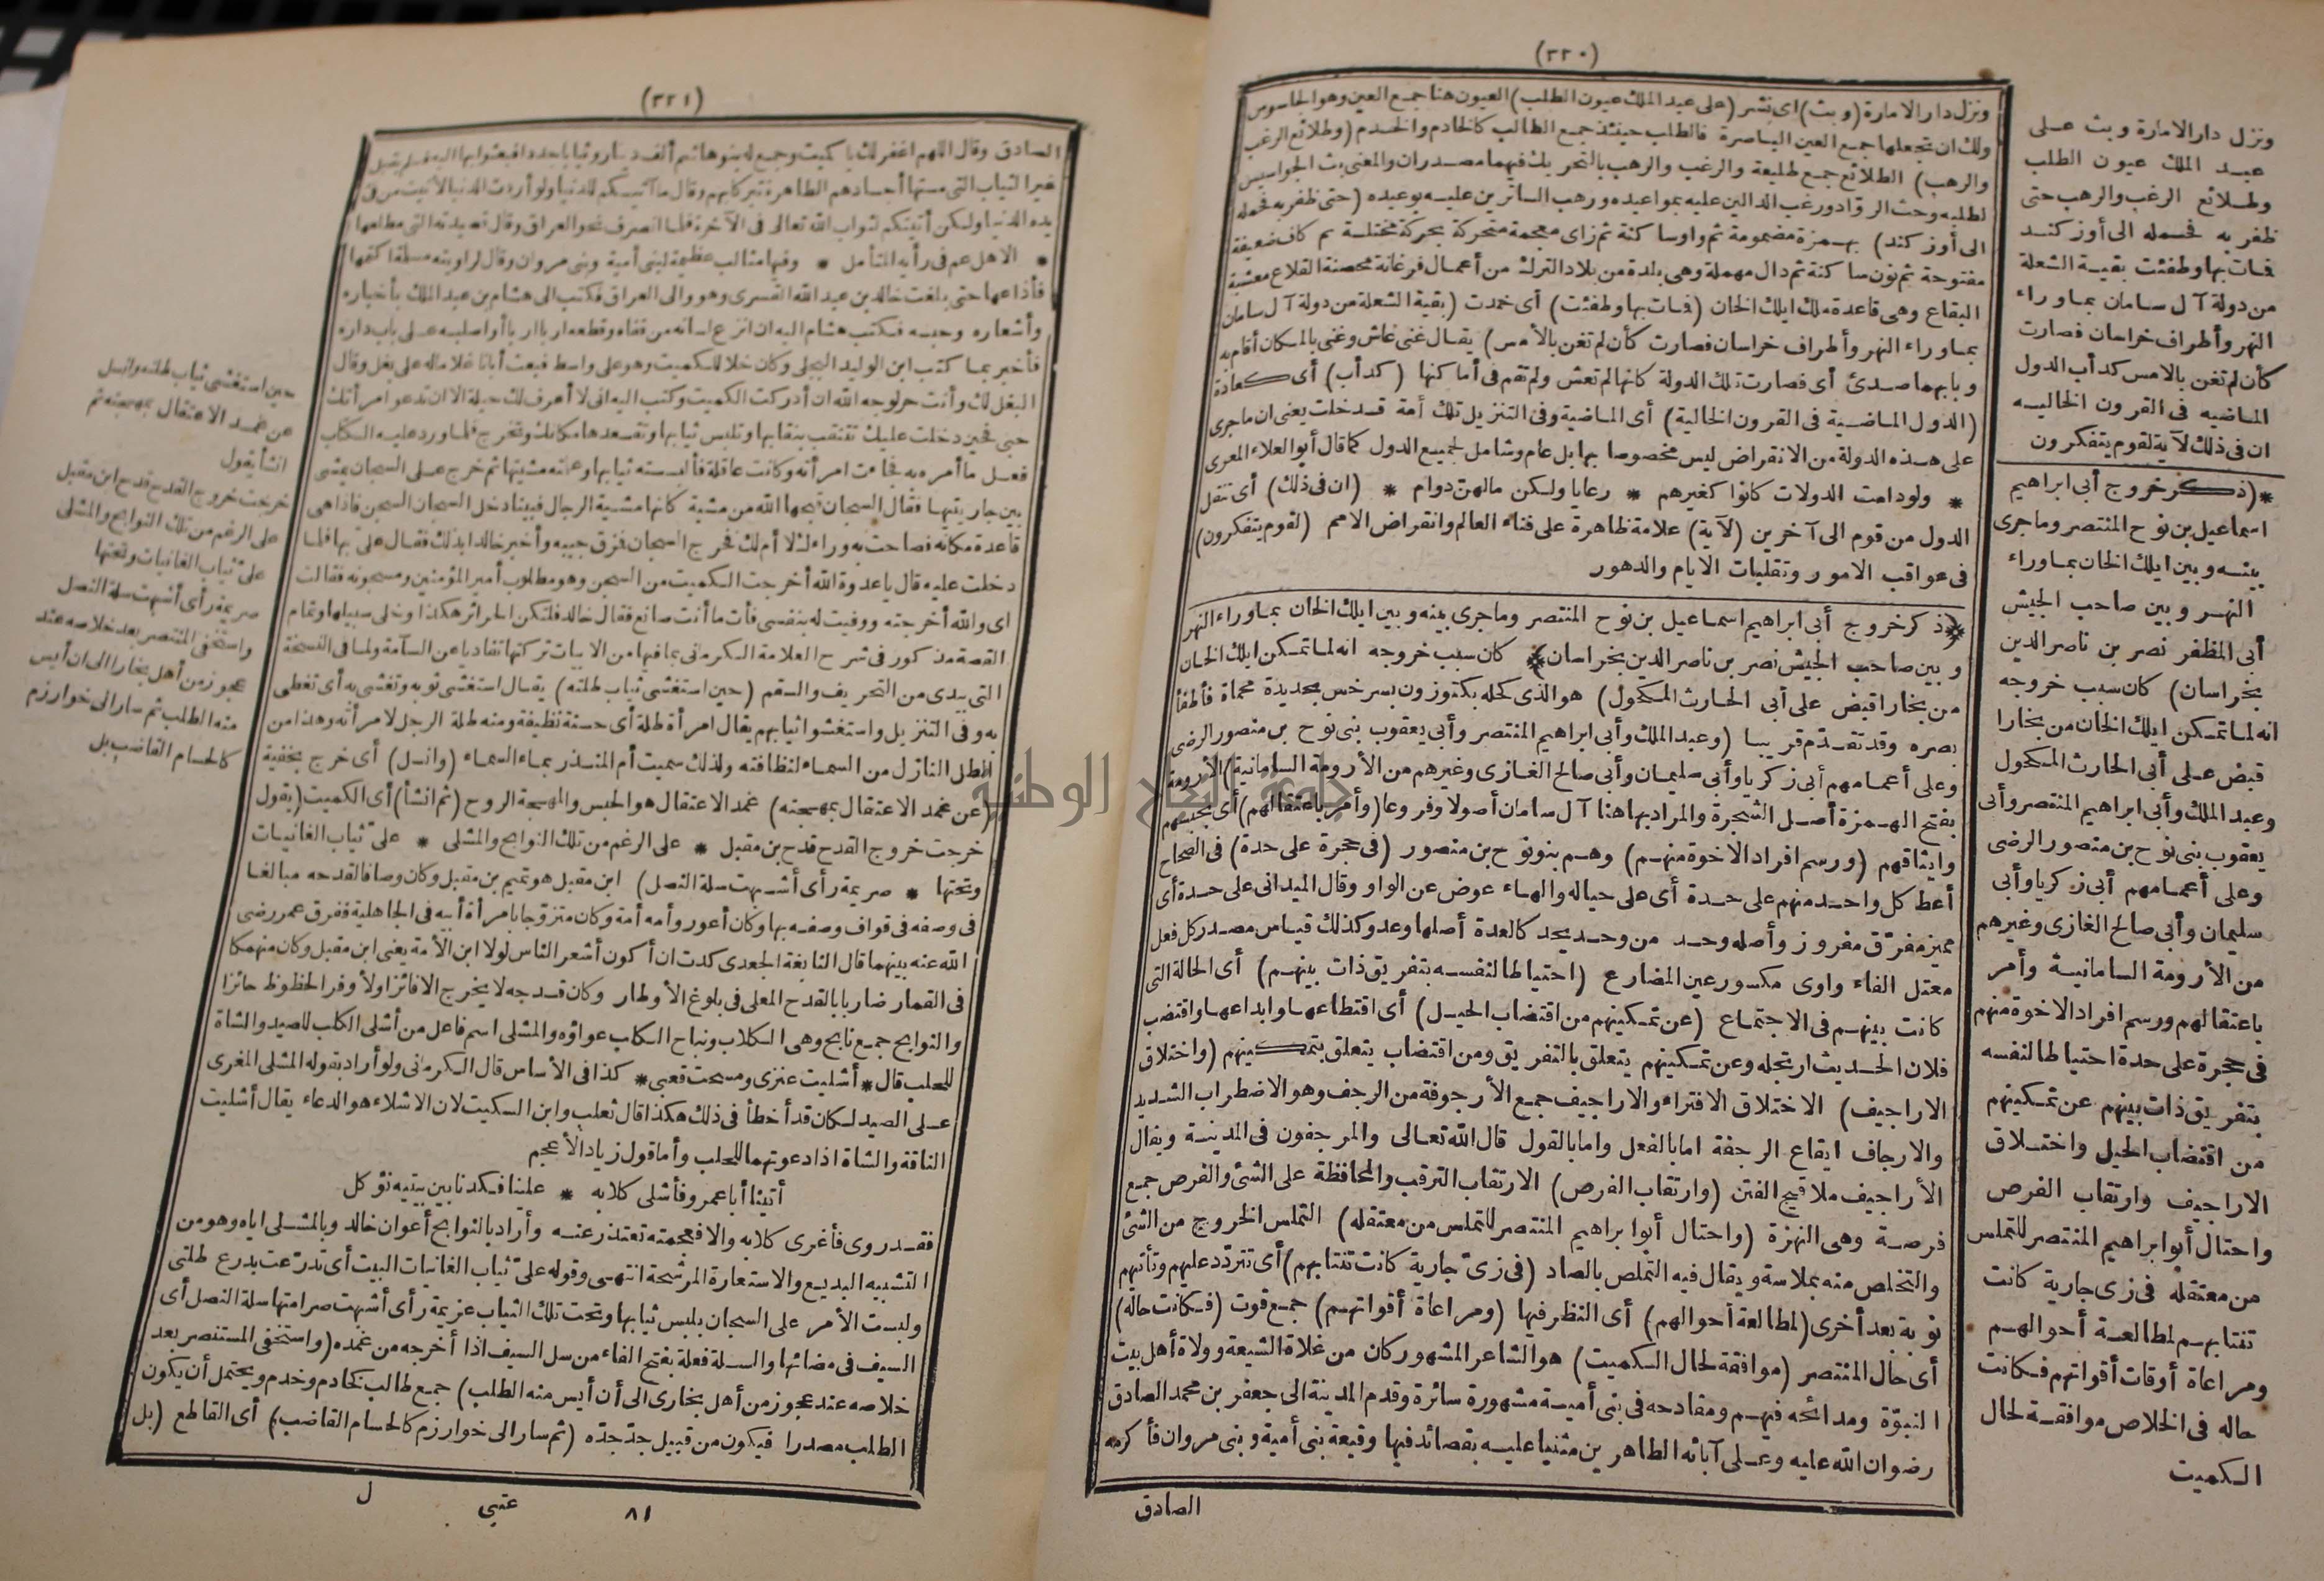 (٣٢٠)
ونزل دار الامارة وبث على
عبد الملك عيون الطلب
وطلائع الرغب والرهب حتى
ظفر به فحمله الى أوزكند
فمات بها وطفئت بقية الشعلة
من دولة آل سامان بما وراء
النهر وأطراف خراسان فصارت
كأن لم تغن بالامس كدأب الدول
الماضيه فى القرون الخاليه
ان فى ذلك لآية لقوم يتفكرون
* (ذكر خروج أبى ابراهيم
اسماعيل بن نوح المنتصر وماجرى
بينه وبين ايلك الخان بما وراء
النهر وبين صاحب الجيش
أبى المظفر نصر بن ناصر الدين
بخراسان) كان سبب خروجه
انه لما تمكن ايلك الخان من بخارا
قبض على أبى الحارث المكحول
وعبد الملك وأبى ابراهيم المنتصر وأبى
يعقوب بنى نوح بن منصور الرضى
وعلى أعمامهم أبى زكريا وأبى
سليمان وأبى صالح الغازى وغيرهم
من الأرومة السامانية وأمر
باعتقالهم ورسم افراد الاخوة منهم
فى حجرة على حدة احتياطا لنفسه
بتفريق ذات بينهم عن تمكينهم
من اقتضاب الحيل واختلاق
الاراجيف وارتقاب الفرص
واحتال أبو ابراهيم المنتصر للتملس
من معتقله فى زى جارية كانت
تنتابهم لمطالعة أحوالهم
ومراعاة أوقات أقواتهم فكانت
حاله فى الخلاص موافقة لحال
الكميت
ونزل دار الامارة (وبث) اى نشر (على عبد الملك عيون الطلب) العيون هنا جمع العين وهو الجاسوس
ولك ان تجعلها جمع العين الباصرة فالطلب حينئذ جمع الطالب كالخادم والخدم (وطلائع الرغب
والرهب) الطلائع جمع طليعة والرغب والرهب بالتحريك فيهما مصدران والمعنى بث الجواسيس
لطلبه وحث الروّاد ورغب الدالين عليه بمواعيده ورهب الساترين عليه بوعيده (حتى ظفر به فحمله
الى أوزكند) بهمزة مضمومة ثم واو ساكنة ثم زاى معجمة متحركة بحركة مختلسة ثم كاف ضعيفة
مفتوحة ثم نون ساكنة ثم دال مهملة وهى بلدة من بلاد الترك من أعمال فرغانة محصنة القلاع معشبة
البقاع وهى قاعدة ملك ايلك الخان (فمات بها وطفئت) أى خمدت (بقية الشعلة من دولة آل سامان
بما وراء النهر وأطراف خراسان فصارت كأن لم تغن بالأمس) يقال غنى عاش وغنى بالمكان أقام به
وبابهما صدئ أى فصارت تلك الدولة كانها لم تعش ولم تقم فى أماكنها (كدأب) أى كعادة
(الدول الماضية فى القرون الخالية) أى الماضية وفى التنزيل تلك أمة قد خلت يعنى ان ماجرى
على هذه الدولة من الانقراض ليس مخصوصا بها بل عام وشامل لجميع الدول كما قال أبو العلاء المعرى
* ولو دامت الدولات كانوا كغيرهم * رعايا ولكن مالهن دوام * (ان فى ذلك) أى تنقل
الدول من قوم الى آخرين (لآية) علامة ظاهرة على فناء العالم وانقراض الامم (لقوم يتفكرون)
فى عواقب الامور وتقلبات الايام والدهور
﴿ذكر خروج أبى ابراهيم اسماعيل بن نوح المنتصر وماجرى بينه وبين ايلك الخان بما وراء النهر
وبين صاحب الجيش نصر بن ناصر الدين بخراسان﴾ كان سبب خروجه انه لما تمكن ايلك الخان
من بخارا قبض على أبى الحارث المكحول) هو الذى كحله بكتوزون بسرخس بحديدة محماة فأطفأ
بصره وقد تقدّم قريبا (وعبد الملك وأبى ابراهيم المنتصر وأبى يعقوب بنى نوح بن منصور الرضى
وعلى أعمامهم أبى زكريا وأبى سليمان وأبى صالح الغازى وغيرهم من الأرومة السامانية) الأرومة
بفتح الهمزة أصل الشجرة والمراد بها هنا آل سامان أصولا وفروعا (وأمر باعتقالهم) أى بحبسهم
وايثاقهم (ورسم افراد الاخوة منهم) وهم بنو نوح بن منصور (فى حجرة على حدة) فى الصحاح
أعط كل واحد منهم على حدة أى على حياله والهاء عوض عن الواو وقال الميدانى على حدة أى
مميز مفرّق مفروز وأصله وحد من وحد يحد كالعدة أصلها وعد وكذلك قياس مصدر كل فعل
معتل الفاء واوى مكسور عين المضارع (احتياطا لنفسه بتفريق ذات بينهم) أى الحالة التى
كانت بينهم فى الاجتماع (عن تمكينهم من اقتضاب الحيل) أى اقتطاعها وابداعها واقتضب
فلان الحديث ارتجله وعن تمكينهم يتعلق بالتفريق ومن اقتضاب يتعلق بتمكينهم (واختلاق
الاراجيف) الاختلاق الافتراء والاراجيف جمع الأرجوفة من الرجف وهو الاضطراب الشديد
والارجاف ايقاع الرجفة اما بالفعل واما بالقول قال الله تعالى والمرجفون فى المدينة ويقال
الأراجيف ملاقيح الفتن (وارتقاب الفرص) الارتقاب الترقب والمحافظة على الشئ والفرص جمع
فرصة وهى النهزة (واحتال أبو ابراهيم المنتصر للتملس من معتقله) التملس الخروج من الشئ
والتخلص منه بملاسة ويقال فيه التملص بالصاد (فى زىّ جارية كانت تنتابهم) أى تتردّد عليهم وتأتيهم
نوبة بعد أخرى (لمطالعة أحوالهم) أى النظر فيها (ومراعاة أقواتهم) جمع قوت (فكانت حاله)
أى حال المنتصر (موافقة لحال الكميت) هو الشاعر المشهور كان من غلاة الشيعة وولاة أهل بيت
النبوّة ومدائحه فيهم ومقادحه فى بنى أمية مشهورة سائرة وقدم المدينة الى جعفر بن محمد الصادق
رضوان الله عليه وعلى آبائه الطاهرين مثنيا عليه بقصائد فيها وقيعة بنى أمية وبنى مروان فأكرمه
الصادق
(٣٢١)
الصادق وقال اللهم اغفر لك يا كميت وجمع له بنو هاشم ألف دينار وثيابا جددا فبعثوا بها اليه فلم يقبل
غير الثياب التى مستها أجسادهم الطاهرة تبركا بهم وقال ما آتيكم للدنيا ولو أردت الدنيا لأتيت من فى
يده الدنيا ولكن أتيتكم لثواب الله تعالى فى الآخرة فلما انصرف نحو العراق وقال قصيدته التى مطلعها
* الا هل عم فى رأيه المتأمل * وفيها مثالب عظيمة لبنى أمية وبنى مروان وقال لراويته
فأذاعها حتى بلغت خالد بن عبد الله القسرى وهو والى العراق فكتب الى هشام بن عبد الملك بأخباره
وأشعاره وحبسه فكتب هشام اليه ان انزع لسانه من قفاه وقطعه اربا اربا أو اصلبه على باب داره
فأخبر بما كتب ابن الوليد البجلى وكان خلا للكميت وهو على واسط فبعث أبانا غلاما له على بغل وقال
البغل لك وأنت حر لوجه الله ان أدركت الكميت وكتب اليه انى لا أعرف لك حيلة الا ان تدعو امرأتك
حبى فحين دخلت عليك تنتقب بنقابها وتلبس ثيابها وتقعدها مكانك وتخرج فلما ورد عليه الكتاب
فعل ما أمره به فجاءت امرأته وكانت عاقلة فألبسته ثيابها وعلمته مشيتها ثم خرج على السجان يمشى
بين جاريتيها فقال السجان قبحها الله من مشية كانها مشية الرجال فبينا دخل السجان السجن فاذا هى
قاعدة مكانه فصاحت به وراءك لا أم لك فخرج السجان فمزق جيبه وأخبر خالدا بذلك فقال علىّ بها فلما
دخلت عليه قال يا عدوة الله أخرجت الكميت من السجن وهو مطلوب أمير المؤمنين ومسجونه فقالت
اى والله أخرجته ووقيت له بنفسى فأت ما أنت صانع فقال خالد فلتكن الحرائر هكذا وخلى سبيلها وتمام
القصة مذكور فى شرح العلامة الكرمانى بما فيها من الابيات تركتها تفاديا عن السآمة ولما فى النسخة
التى بيدى من التحريف والسقم (حين استغشى ثياب طلته) يقال استغشى ثوبه وتغشى به أى تغطى
به وفى التنزيل واستغشوا ثيابهم يقال امرأة طلة أى حسنة نظيفة ومنه طلة الرجل لامرأته وهذا من
الطل النازل من السماء لنظافته ولذلك سميت أم المنذر بماء السماء (وانسل) أى خرج بخفية
(عن غمد الاعتقال بمهجته) غمد الاعتقال هو الحبس والمهجة الروح (ثم انشأ) أى الكميت (يقول
خرجت خروج القدح قدح بن مقبل * على الرغم من تلك النوابح والمشلى * علىّ ثياب الغانيات
وتحتها * صريمة رأى أشبهت سلة النصل) ابن مقبل هو تميم بن مقبل وكان وصافا لقدحه مبالغا
فى وصفه فى قواف وصفه بها وكان أعور وأمه أمة وكان متزوّجا بامرأة أبيه فى الجاهلية ففرق عمر رضى
الله عنه بينهما قال النابغة الجعدى كدت ان أكون أشعر الناس لولا ابن الأمة يعنى ابن مقبل وكان منهمكا
فى القمار ضاربا بالقدح المعلى فى بلوغ الأوطار وكان قدحه لا يخرج الا فائزا ولأوفر الحظوظ حائزا
والنوابح جمع نابح وهى الكلاب ونباح الكلاب عواؤه والمشلى اسم فاعل من أشلى الكلب للصيد والشاة
للحلب قال * أشليت عنزى ومسحت قعبى * كذا فى الأساس قال الكرمانى ولو أراد بقوله المشلى المغرى
على الصيد لكان قد أخطأ فى ذلك هكذا قال ثعلب وابن السكيت لان الاشلاء هو الدعاء يقال أشليت
الناقة والشاة اذا دعوتهما للحلب وأما قول زياد الأعجم
أتينا أبا عمرو فأشلى كلابه * علينا فكدنا بين بيتيه نؤكل
فقد روى فأغرى كلابه والا فعجمته تعتذر عنه وأراد بالنوابح أعوان خالد وبالمشلى اياه وهو من
التشبيه البديع والاستعارة المرشحة انتهى وقوله علىّ ثياب الغانيات البيت أى تدرّعت بدرع طلتى
ولبست الأمر على السجان بلبس ثيابها وتحت تلك الثياب عزيمة رأى أشبهت صرامتها سلة النصل أى
السيف فى مضائها والسلة فعلة بفتح الفاء من سل السيف اذا أخرجه من غمده (واستخفى المستنصر بعد
خلاصه عند عجوز من أهل بخارى الى أن أيس منه الطلب) جمع طالب كخادم وخدم ويحتمل أن يكون
الطلب مصدرا فيكون من قبيل جدّ جدّه (ثم سار الى خوارزم كالحسام القاضب) أى القاطع (بل
حين استغشى ثياب طلته وانسل
عن غمد الاعتقال بمهجته ثم
انشأ يقول
خرجت خروج القدح قدح ابن مقبل
على الرغم من تلك النوابح والمشلى
علىّ ثياب الغانيات وتحتها
صريمة رأى أشبهت سلة النصل
واستخفى المنتصر بعد خلاصه عند
عجوز من أهل بخارا الى ان أيس
منه الطلب ثم سار الى خوارزم
كالحسام القاضب بل
٨١ عتبى ل
جامعة النجاح الوطنية